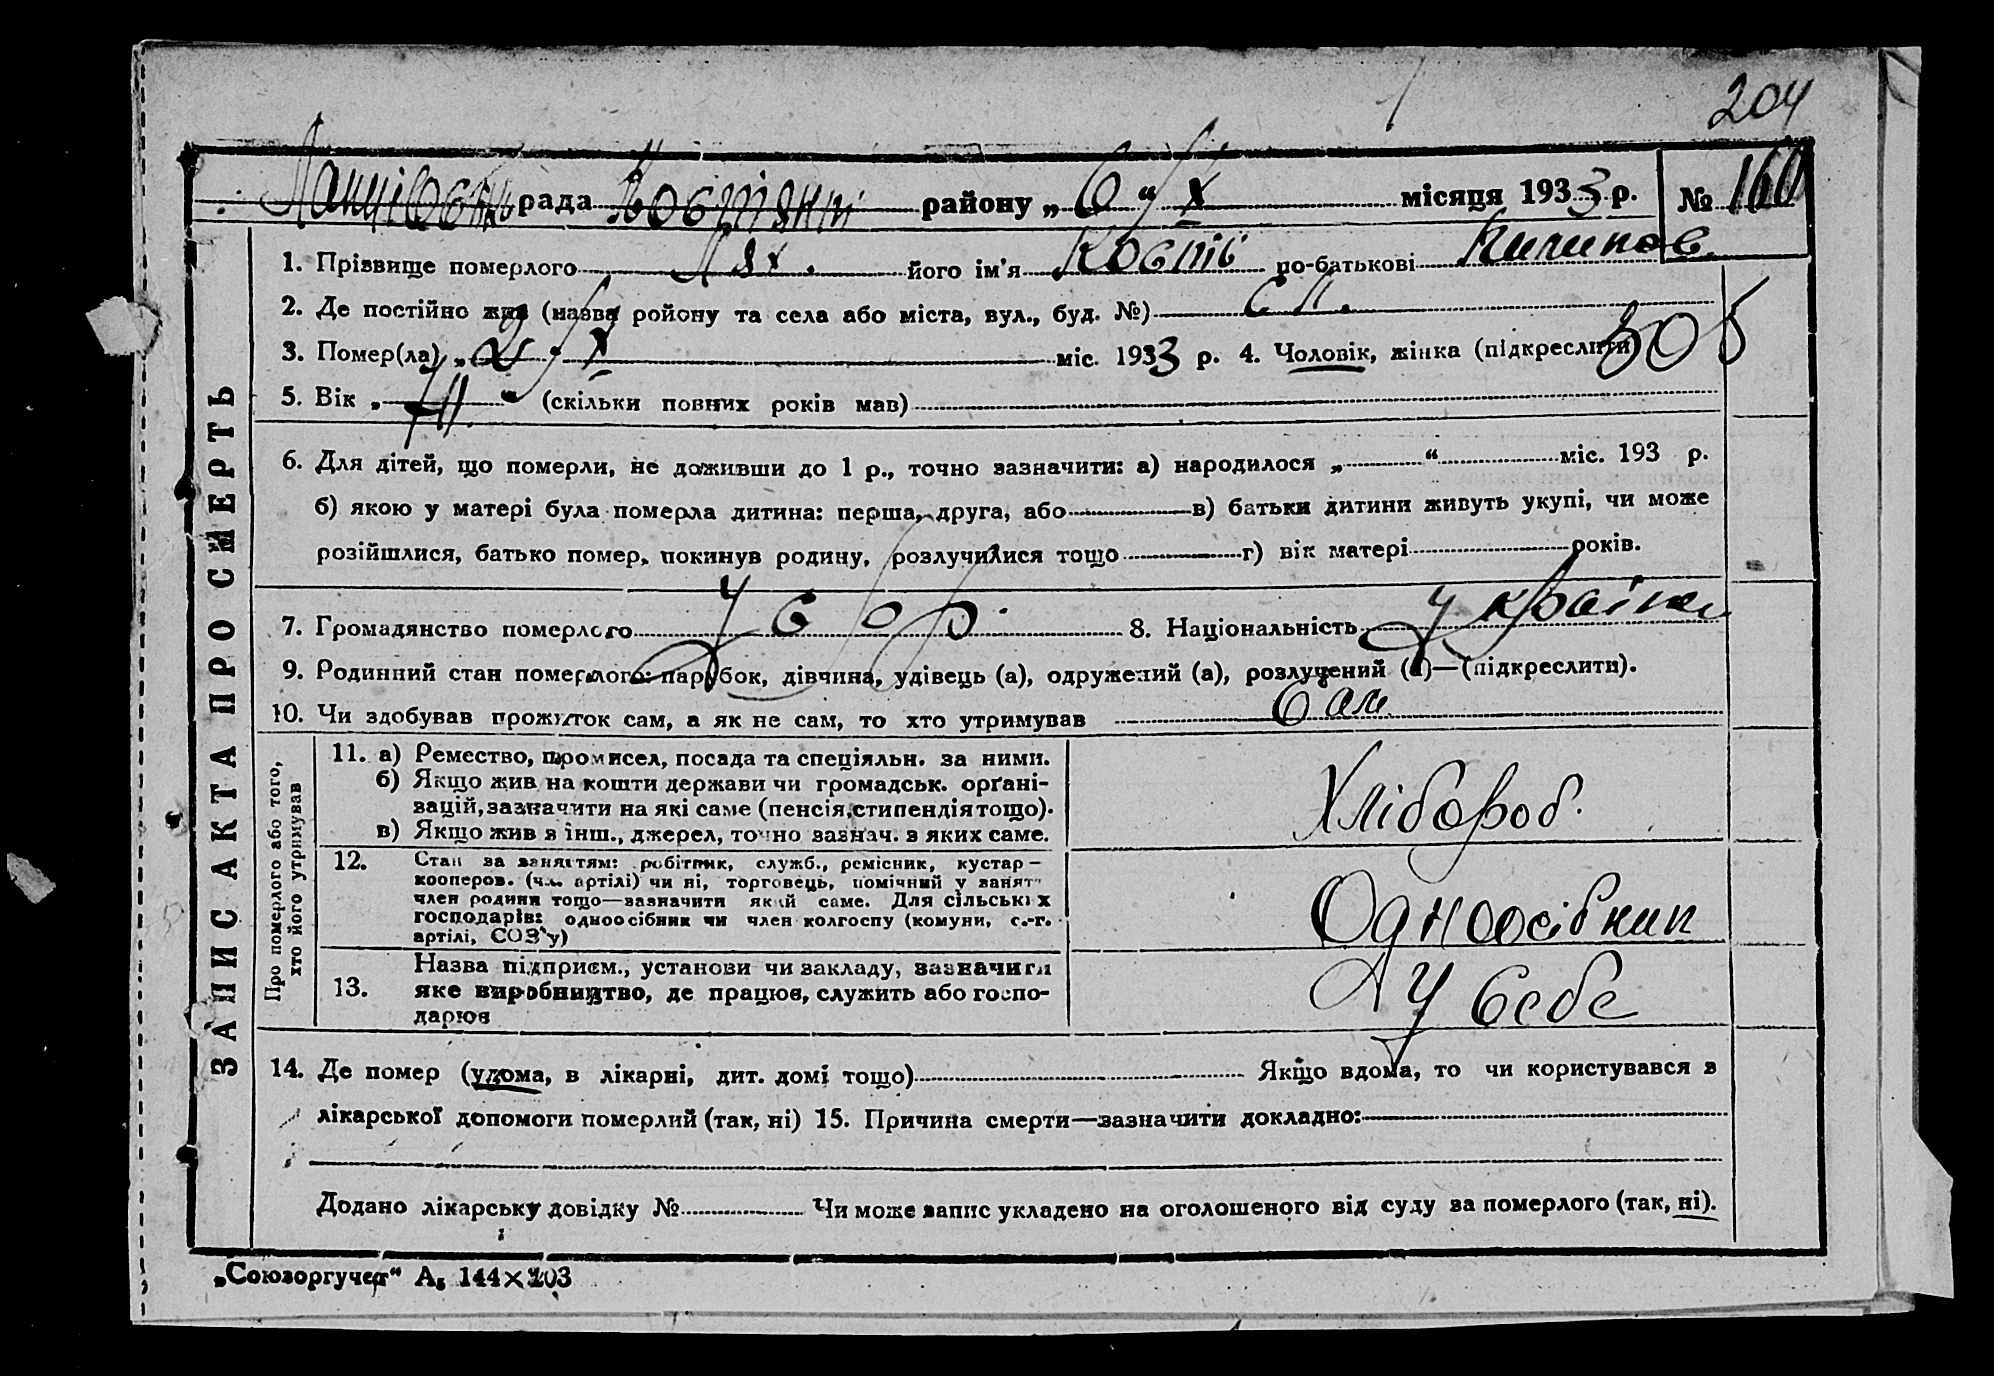 204
рада Костянт району „6“ X місяця 1933 р. № 160
1. Прізвище померлого Лях. його ім'я Костів по-батькові Кичипов.
2. Де постійно жив (назва ройону та села або міста, вул., буд. №) с. Л.
3. Помер(ла) „2“ X міс. 1933 р. 4. Чоловік, жінка (підкреслити) 305
5. Вік „41.“ (скільки повних років мав)
6. Для дітей, що померли, не доживши до 1 р., точно зазначити: а) народилося „ “ міс. 193 р.
б) якою у матері була померла дитина: перша, друга, або в) батьки дитини живуть укупі, чи може
розійшлися, батько помер, покинув родину, розлучилися тощо г) вік матері років.
7. Громадянство померлого УСРР. 8. Національність Україн
9. Родинний стан померлого: парубок, дівчина, удівець (а), одружений (а), розлучений (а)—(підкреслити).
10. Чи здобував прожиток сам, а як не сам, то хто утримував Сам
ЗАПИС АКТА ПРО СМЕРТЬ
Про померлого або того,
хто його утримував
11. а) Ремество, промисел, посада та спеціяльн. за ними.
б) Якщо жив на кошти держави чи громадськ. орґані-
зацій, зазначити на які саме (пенсія, стипендія тощо).
в) Якщо жив з інш., джерел, точно зазнач. з яких саме.
Хлібороб.
12. Стан за заняттям: робітник, служб., ремісник, кустар —
кооперов. (чл. артілі) чи ні, торговець, помічний у занят
член родини тощо—зазначити який саме. Для сільських
господарів: одноосібник чи член колгоспу (комуни, с.-г.
артілі, СОЗ'у)
Одноосібник
13. Назва підприєм., установи чи закладу, зазначити
яке виробництво, де працює, служить або госпо-
дарює
У себе
14. Де помер (удома, в лікарні, дит. домі тощо) Якщо вдома, то чи користувався з
лікарської допомоги померлий (так, ні) 15. Причина смерти—зазначити докладно:
Додано лікарську довідку № Чи може запис укладено на оголошеного від суду за померлого (так, ні).
„Союзоргучет“ А5 144×203